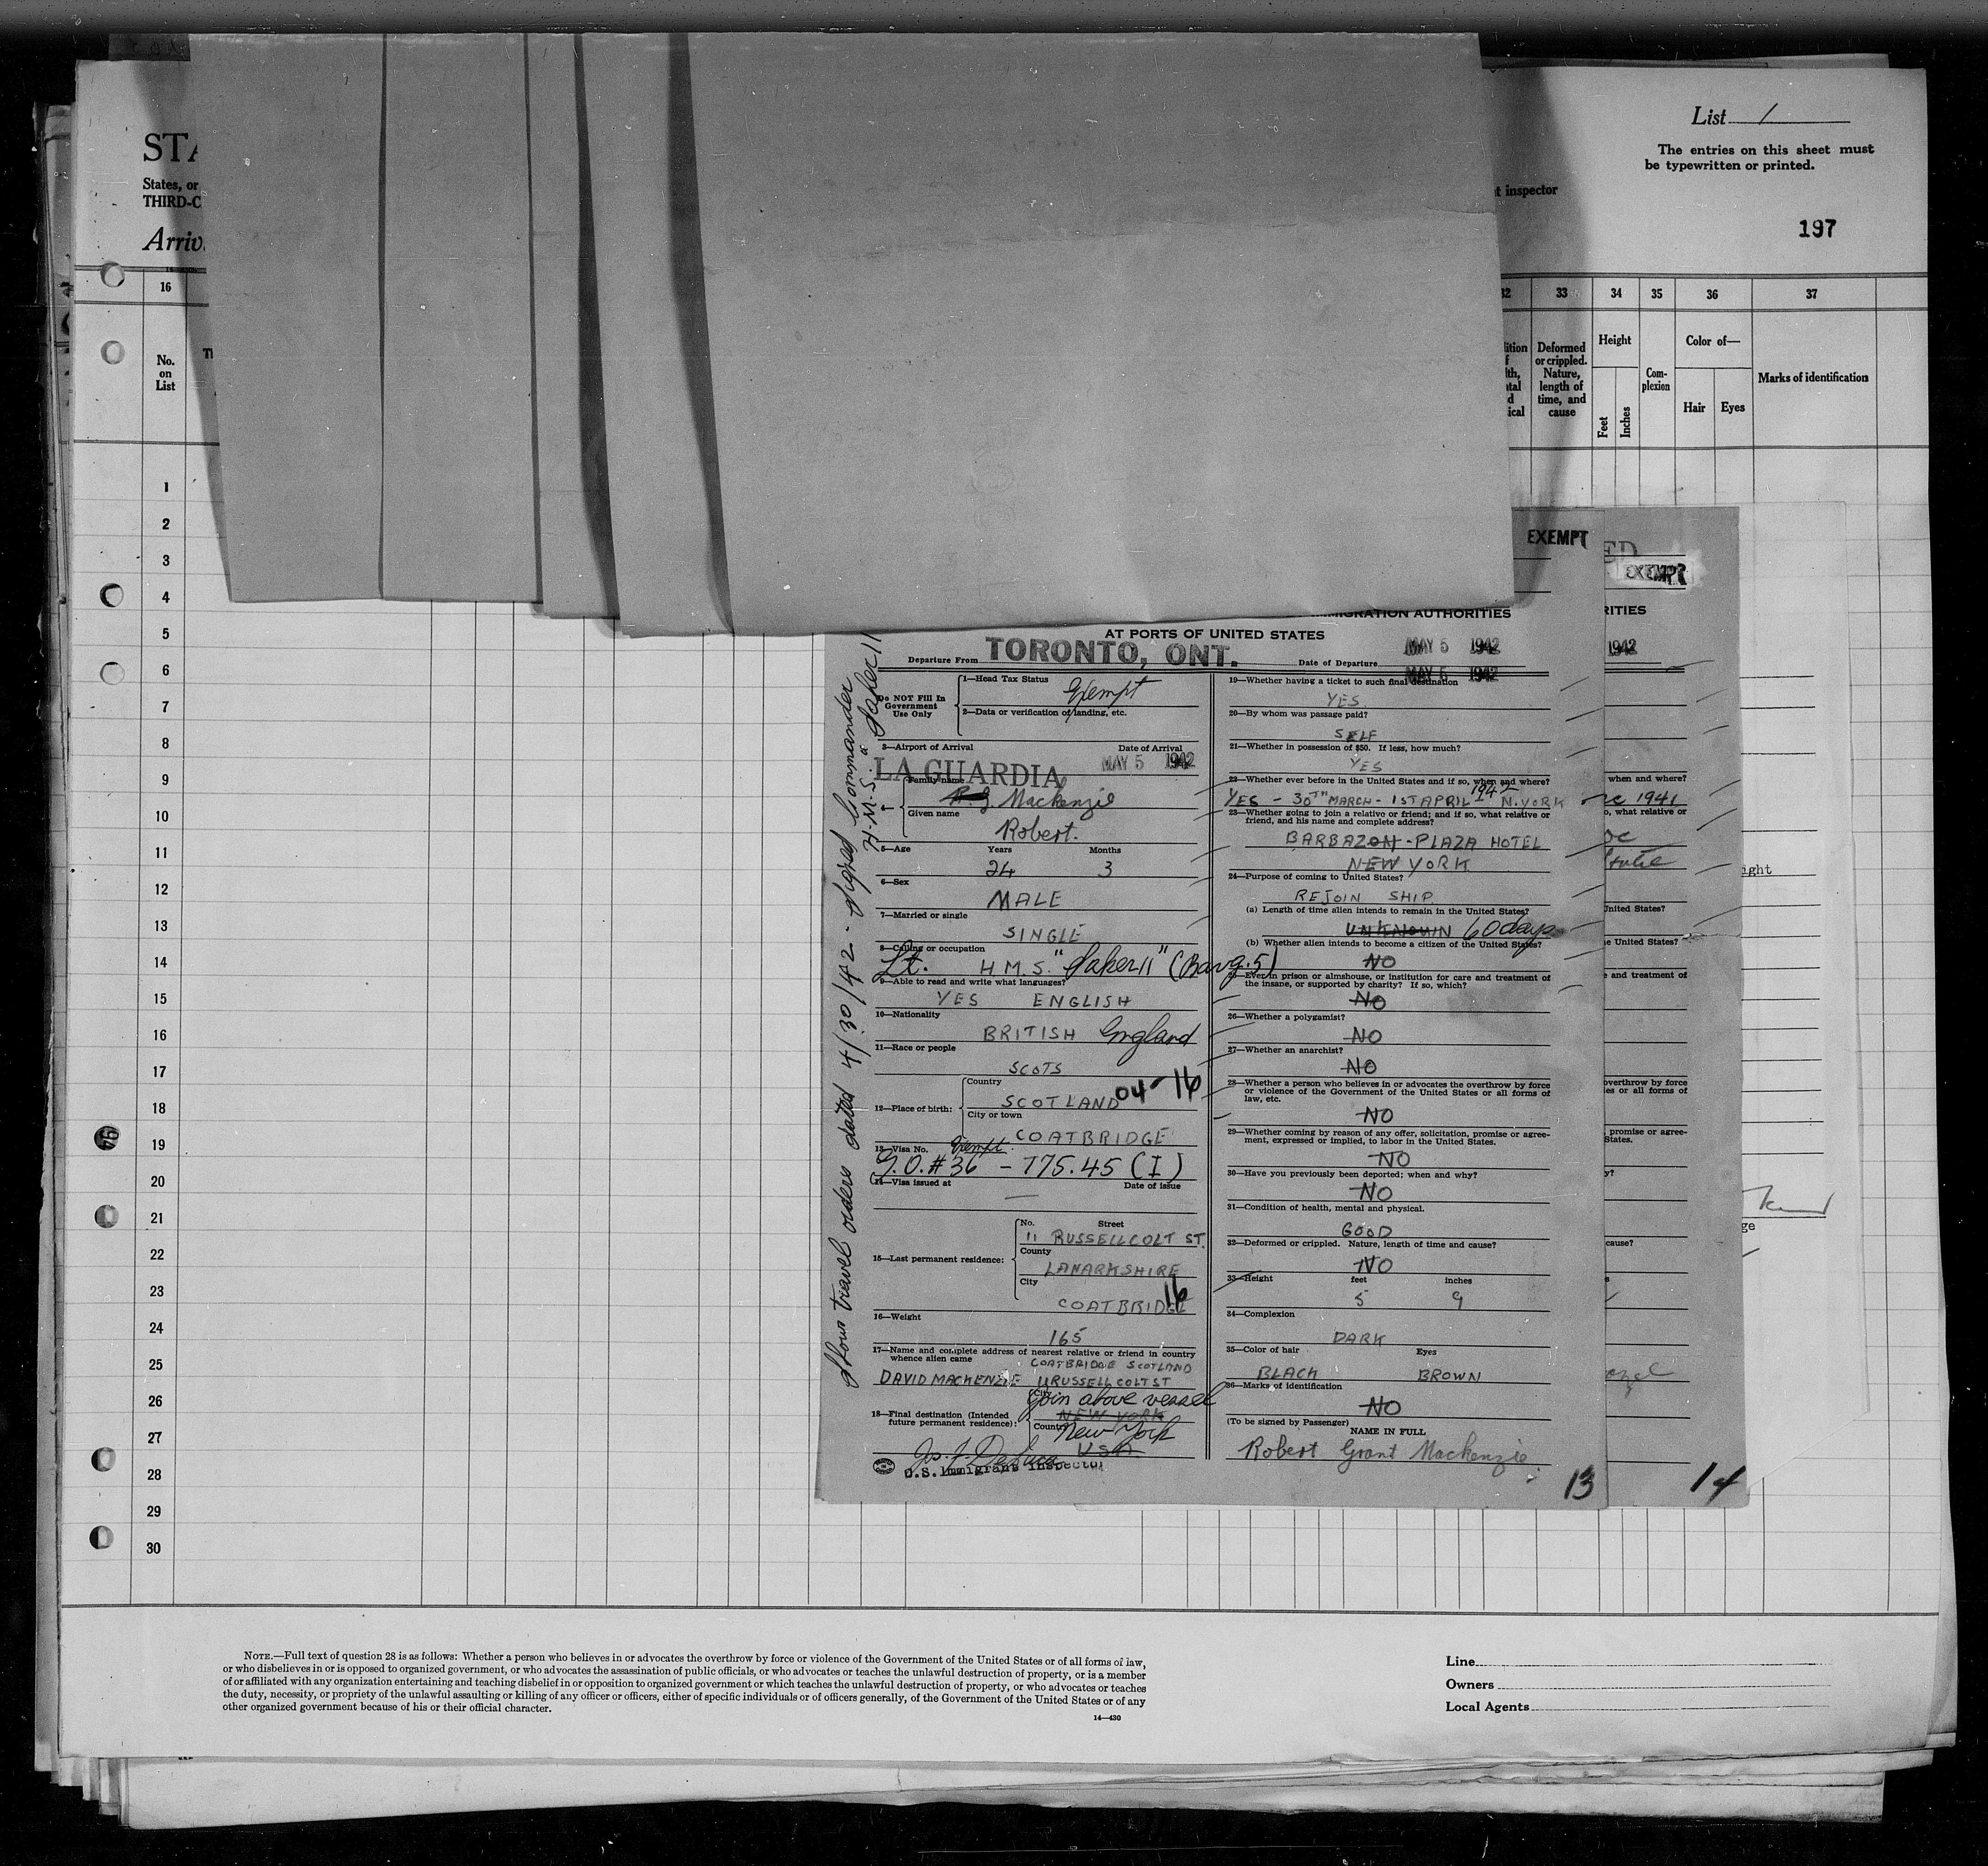 List 1
The entries on this sheet must
be typewritten or printed.
197
STA
States, or
THIRD-C
Arriv
t inspector
16
33 34 35 36 37
No.
on
List
Deformed
or crippled.
Nature,
length of
time, and
cause
Height
Feet Inches
Com-
plexion
Color of—
Hair Eyes
Marks of identification
1
2
3
4
5
6
7
8
9
10
11
12
13
14
15
16
17
18
19
20
21
22
23
24
25
26
27
28
29
30
EXEMPT
MIGRATION AUTHORITIES
AT PORTS OF UNITED STATES
Departure From TORONTO, ONT. Date of Departure MAY 5 1942
MAY 5 1942
Do NOT Fill In
Government
Use Only
1—Head Tax Status Exempt
2—Data or verification of landing, etc.
3—Airport of Arrival Date of Arrival
LA GUARDIA MAY 5 1942
Family name
R.G. Mackenzie
Given name
Robert.
5—Age Years Months
24 3
6—Sex
MALE
7—Married or single
SINGLE
8—Calling or occupation
Lt. H.M.S. "Saker II" (Barg. 5)
9—Able to read and write what languages?
YES ENGLISH
10—Nationality
BRITISH England
11—Race or people
SCOTS
12—Place of birth:
Country
SCOTLAND 04-16
City or town
COATBRIDGE
13—Visa No. Exempt.
G.O.#36 - 175.45 (I)
14—Visa issued at Date of issue
—
15—Last permanent residence:
No. Street
11 RUSSELLCOLT ST.
County
LANARKSHIRE
City
COATBRIDGE 16
16—Weight
165
17—Name and complete address of nearest relative or friend in country
whence alien came
COATBRIDGE SCOTLAND
DAVID MACKENZIE 11 RUSSELLCOLT ST
18—Final destination (Intended
future permanent residence):
City
Join above vessel
NEW YORK
Country
New York
USA
Jos. F. DeLuca
U.S. Immigrant Inspector
19—Whether having a ticket to such final destination
YES
20—By whom was passage paid?
SELF
21—Whether in possession of $50. If less, how much?
YES
22—Whether ever before in the United States and if so, when and where?
YES - 30TH MARCH - 1ST APRIL 1942 N.YORK
23—Whether going to join a relative or friend; and if so, what relative or
friend, and his name and complete address?
BARBAZON-PLAZA HOTEL
NEW YORK
24—Purpose of coming to United States?
REJOIN SHIP
(a) Length of time alien intends to remain in the United States?
UNKNOWN 60 days
(b) Whether alien intends to become a citizen of the United States?
NO
25—Ever in prison or almshouse, or institution for care and treatment of
the insane, or supported by charity? If so, which?
NO
26—Whether a polygamist?
NO
27—Whether an anarchist?
NO
28—Whether a person who believes in or advocates the overthrow by force
or violence of the Government of the United States or all forms of
law, etc.
NO
29—Whether coming by reason of any offer, solicitation, promise or agree-
ment, expressed or implied, to labor in the United States.
NO
30—Have you previously been deported; when and why?
NO
31—Condition of health, mental and physical.
GOOD
32—Deformed or crippled. Nature, length of time and cause?
NO
33—Height feet inches
5 9
34—Complexion
DARK
35—Color of hair Eyes
BLACK BROWN
36—Marks of identification
NO
(To be signed by Passenger) NAME IN FULL
Robert Grant Mackenzie
13
Show travel orders dated 4/30/42 - signed Commander
H.M.S. "Saker II
EXEMPT
RITIES
1942
when and where?
1941
o, what relative or
United States?
e United States?
e and treatment of
overthrow by force
es or all forms of
promise or agree-
States.
y?
cause?
14
ight
94
NOTE.—Full text of question 28 is as follows: Whether a person who believes in or advocates the overthrow by force or violence of the Government of the United States or of all forms of law,
or who disbelieves in or is opposed to organized government, or who advocates the assassination of public officials, or who advocates or teaches the unlawful destruction of property, or is a member
of or affiliated with any organization entertaining and teaching disbelief in or opposition to organized government or which teaches the unlawful destruction of property, or who advocates or teaches
the duty, necessity, or propriety of the unlawful assaulting or killing of any officer or officers, either of specific individuals or of officers generally, of the Government of the United States or of any
other organized government because of his or their official character.
14—430
Line
Owners
Local Agents